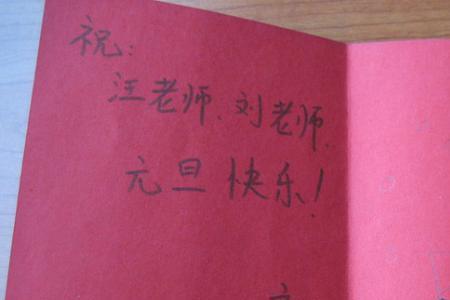 祝:
汪老师、刘老师、
元旦快乐!